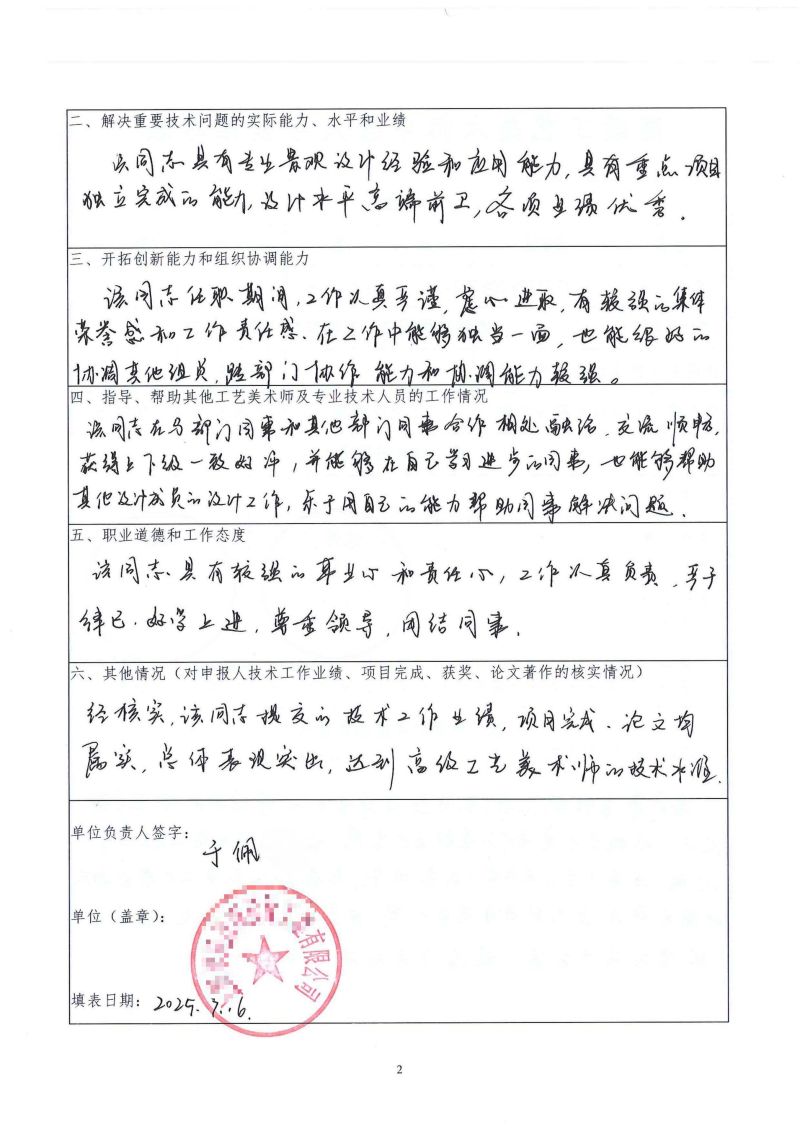 二、解决重要技术问题的实际能力、水平和业绩
该同志具有专业景观设计经验和应用能力,具有重点项目
独立完成的能力,设计水平高端前卫,各项业绩优秀.
三、开拓创新能力和组织协调能力
该同志任职期间,工作认真严谨,虚心进取,有较强的集体
荣誉感和工作责任感、在工作中能够独当一面,也能很好的
协调其他组员,跨部门协作能力和协调能力较强。
四、指导、帮助其他工艺美术师及专业技术人员的工作情况
该同志在与部门同事和其他部门同事合作相处融洽,交流顺畅,
获得上下级一致好评,并能够在自己学习进步的同事,也能够帮助
其他设计成员的设计工作,乐于用自己的能力帮助同事解决问题.
五、职业道德和工作态度
该同志具有较强的事业心和责任心,工作认真负责,严于
律己.好学上进,尊重领导,团结同事.
六、其他情况(对申报人技术工作业绩、项目完成、获奖、论文著作的核实情况)
经核实,该同志提交的技术工作业绩,项目完成、论文均
属实,总体表现突出,达到高级工艺美术师的技术水准.
单位负责人签字:
于佩
单位(盖章):
有限公司
填表日期: 2025.7.16.
2